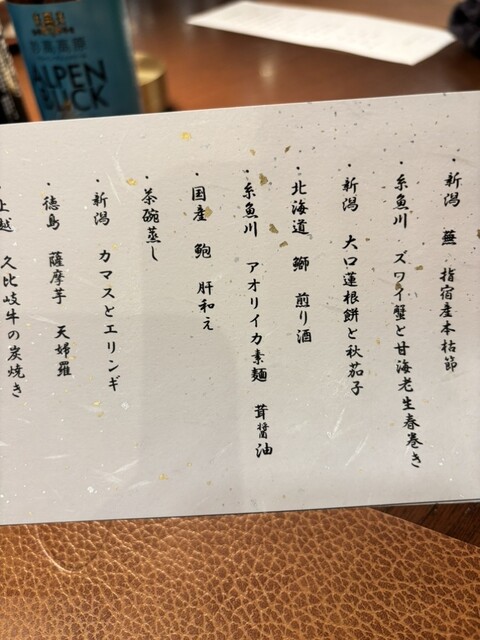 ・新潟 蕪 指宿産本枯節
・糸魚川 ズワイ蟹と甘海老生春巻き
・新潟 大口蓮根餅と秋茄子
・北海道 鰤 煎り酒
・糸魚川 アオリイカ素麺 茸醤油
・国産 鮑 肝和え
・茶碗蒸し
・新潟 カマスとエリンギ
・徳島 薩摩芋 天婦羅
・上越 久比岐牛の炭焼き
妙高高原
ALPEN
BLICK